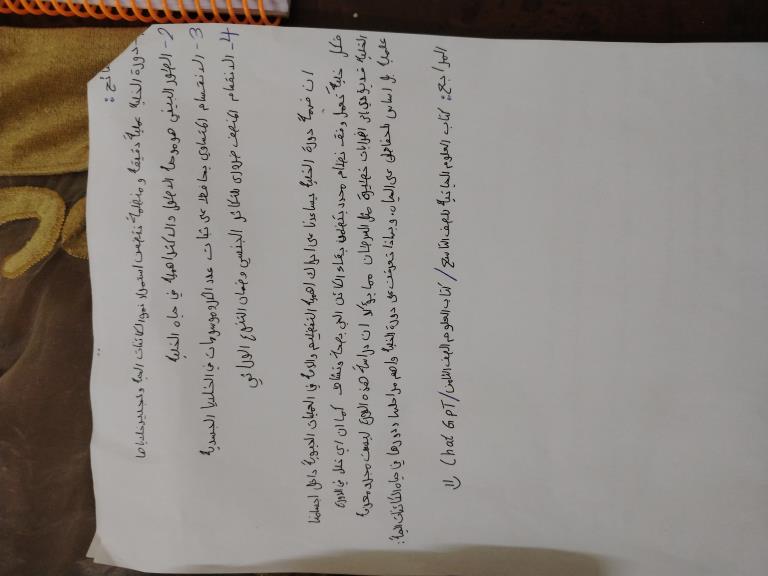 نتائج:
دورة الخلية عملية دقيقة ومنظمة تضمن استمرار نمو الكائنات الحية وتجديد خلاياها
2- الطور البيني هو مرحلة الدخول والاكثر اهمية في حياة الخلية
3- الانقسام المتساوي يحافظ على ثبات عدد الكروموسومات في الخلايا الجسدية
4- الانقسام المنصف ضروري للتكاثر الجنسي وضمان التنوع الوراثي
ان فهم دورة الخلية يساعدنا على ادراك اهمية التنظيم والدقة في العمليات الحيوية داخل اجسامنا
فكل خلية تعمل وفق نظام محدد يضمن بقاء الكائن الحي بصحة ونشاط كما ان اي خلل في الدورة
الخلية قد يؤدي الى اضطرابات خطيرة مثل السرطان مما يؤكد ان دراسة هذه الدورة ليست مجرد معرفة
علمية بل اساس للحفاظ على الحياة وبهذا تعرفت على دورة الخلية واهم مراحلها ودورها في حياة الكائنات الحية.
المراجع: كتاب العلوم الحياتية للصف التاسع / كتاب العلوم الصف الثامن / Chat GPT